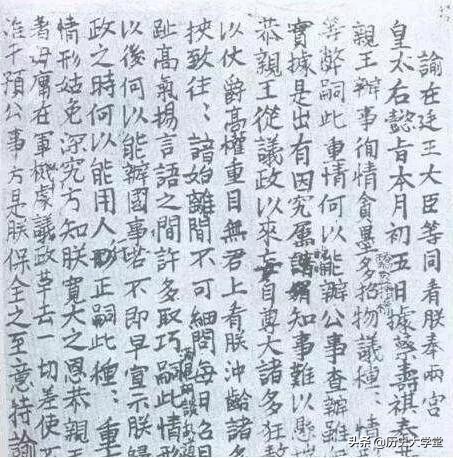 諭在廷王大臣等同看朕奉兩宮
皇太后懿旨本月初五日據蔡壽祺奏
親王辦事徇情貪墨驕盈攬權多招物議種：情
等弊嗣此重情何以能辦公事查辦雖
實據是出有因究屬知事難以懸
恭親王從議政以來妄自尊大諸多狂敖
以仗爵高權重目無君上看朕沖齡諸
挾致往：諳始離間不可細問每日召
趾高氣揚言語之間許多取巧滿口胡談亂道嗣此情形
以後何以能辦國事若不即早宣示朕歸
政之時何以能用人行正嗣此種：重
情形姑免深究方知朕寬大之恩恭親王
著毋庸在軍機處議政革去一切差使不
准干預公事方是朕保全之至意特諭
头条 @历史大学堂